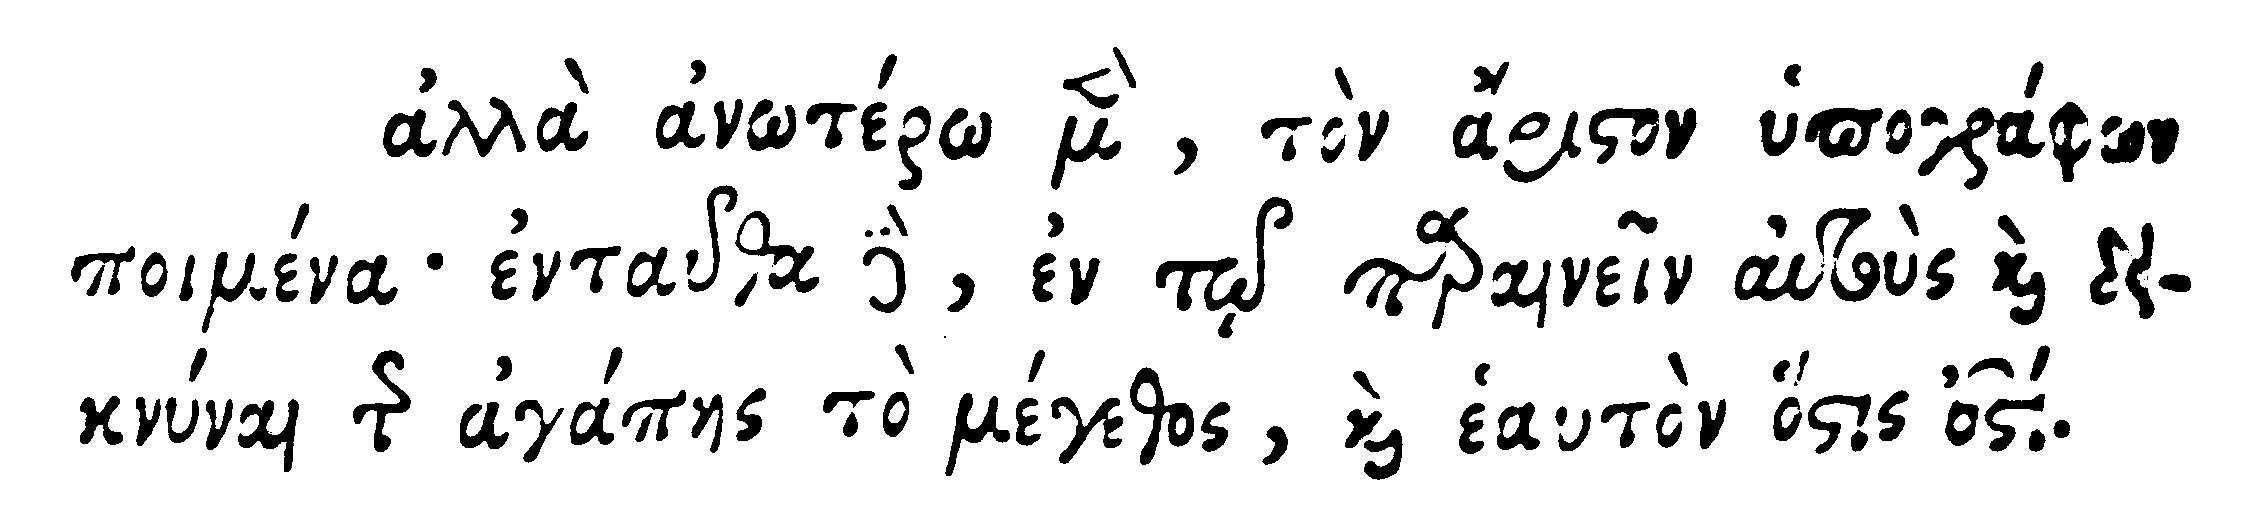 ἀλλὰ ἀνωτέρω μὲν, τὸν ἄριστον ὑπογράφων
ποιμένα· ἐνταῦθα δὲ, ἐν τῷ παραινεῖν αὐτοὺς καὶ δει-
κνύναι τῆς ἀγάπης τὸ μέγεθος, καὶ ἑαυτὸν ὅστις ἐστί.